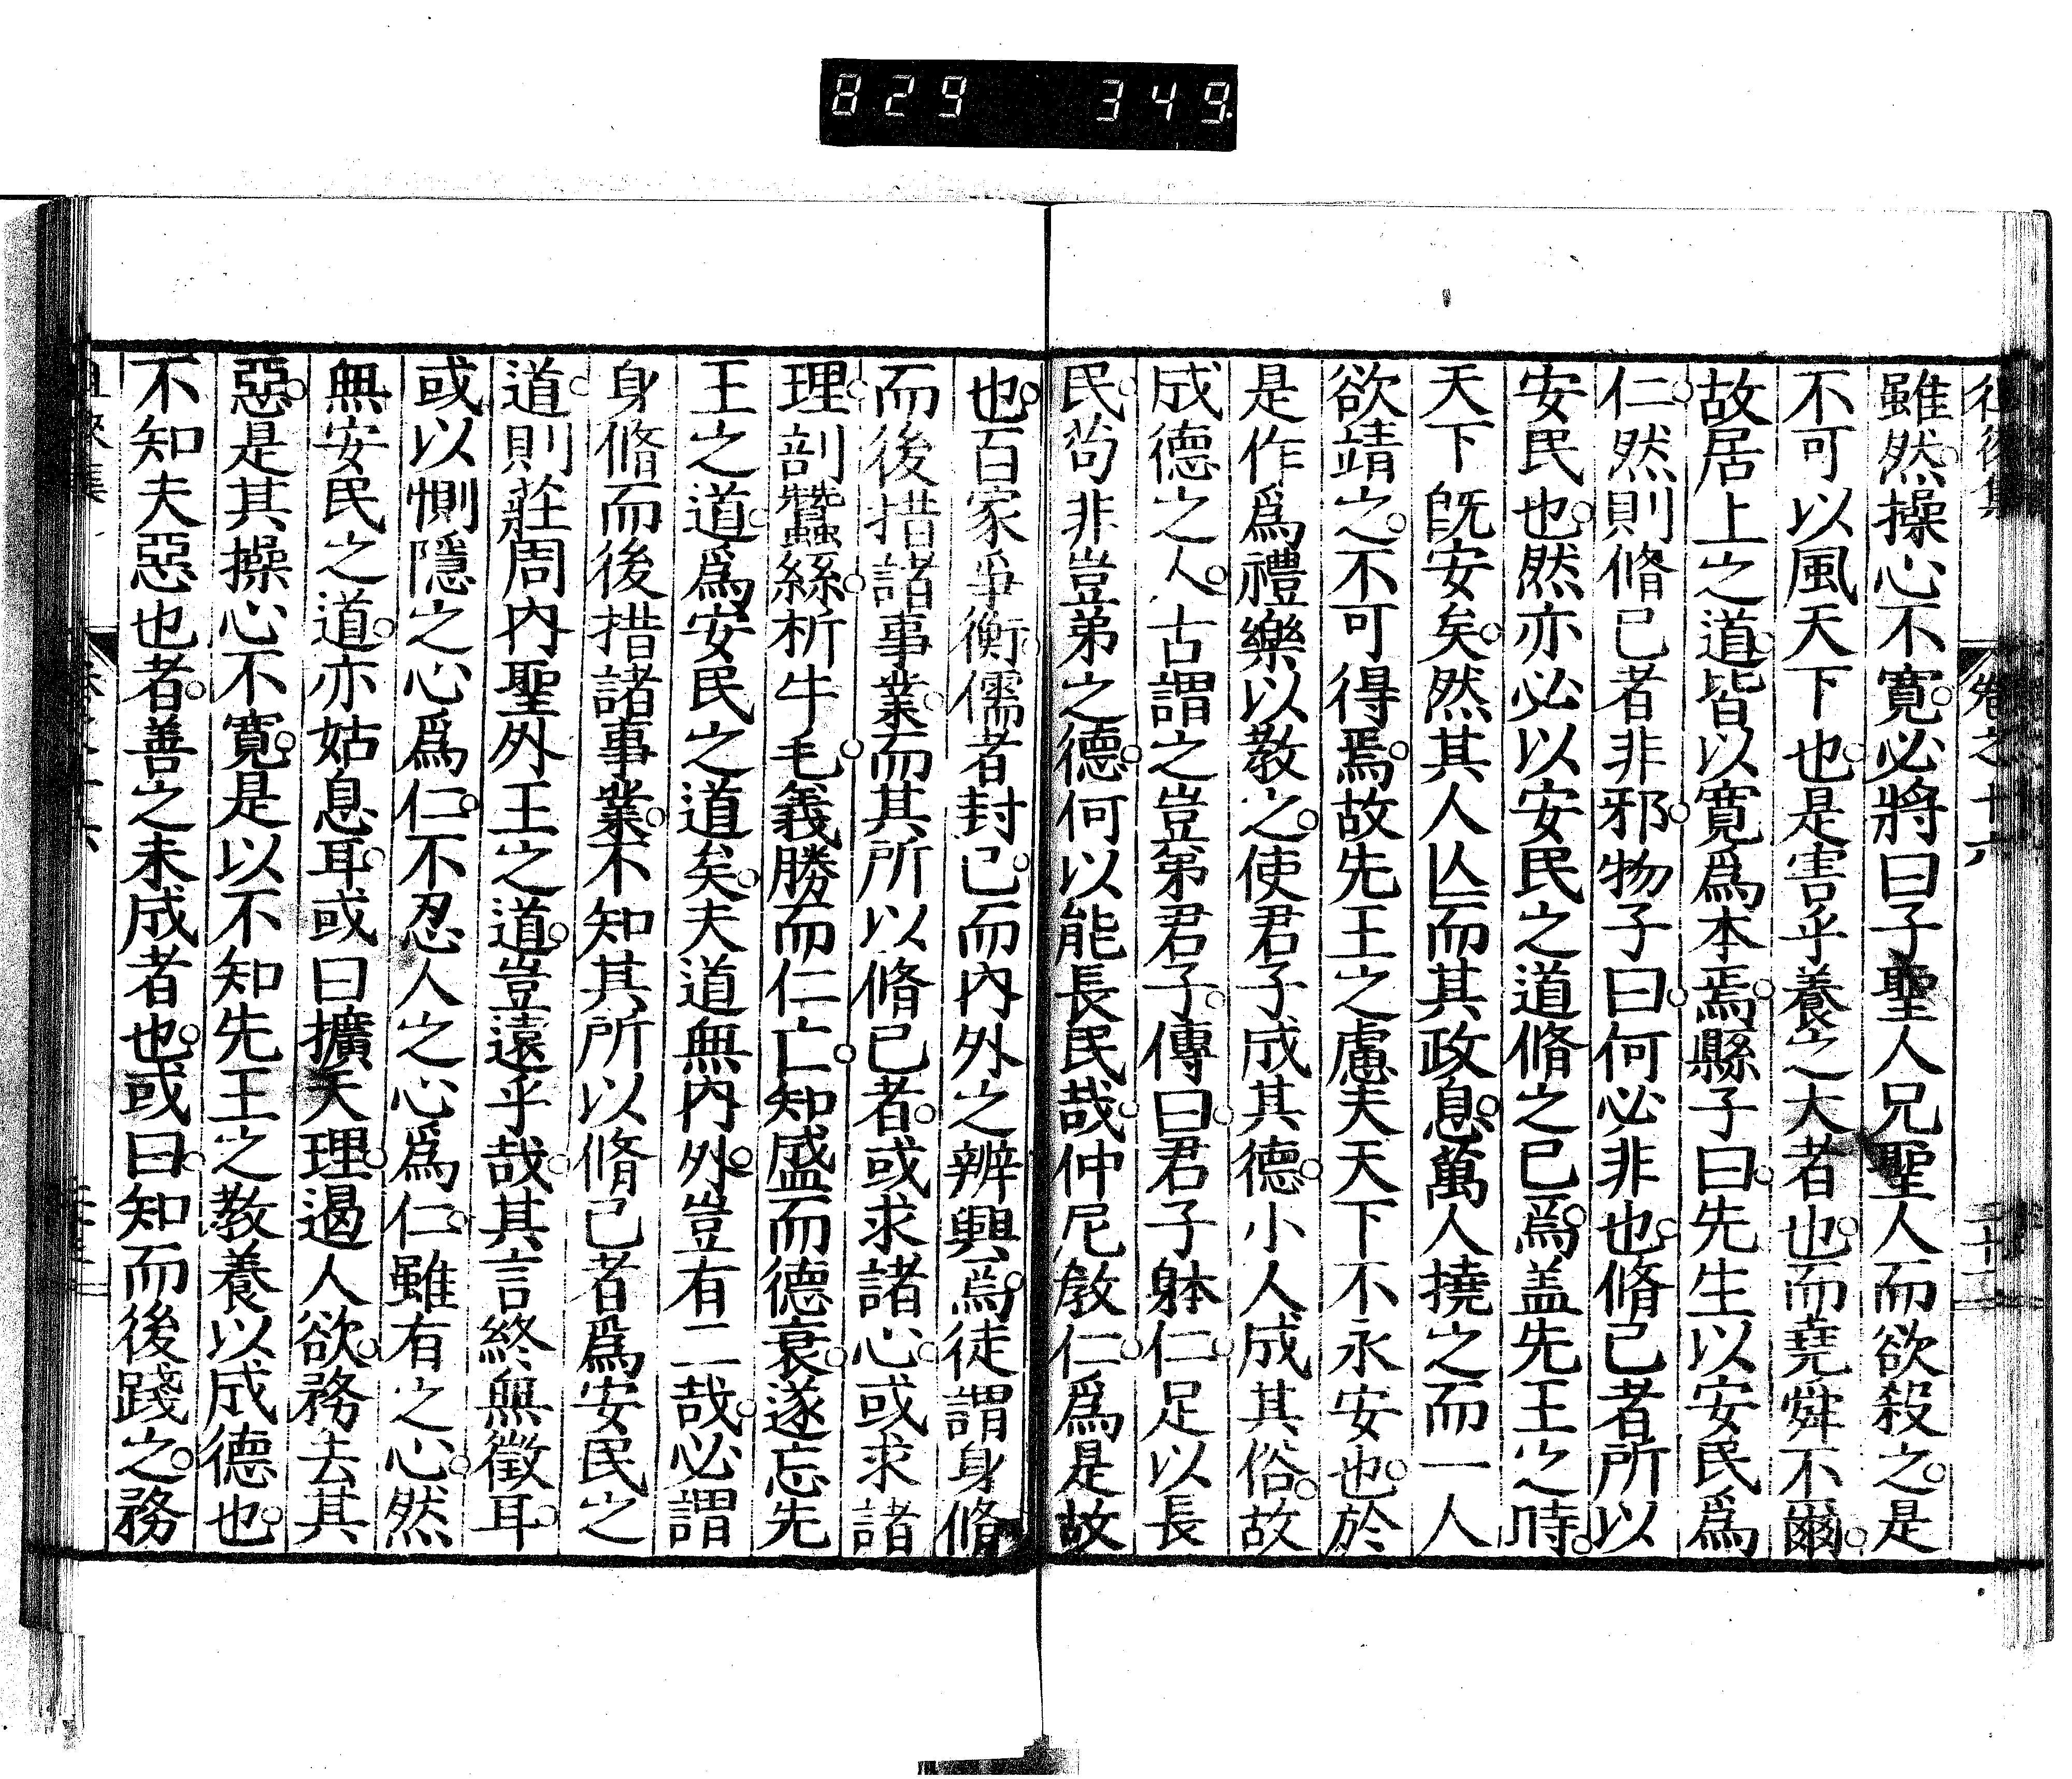 829 349
雖然操心不寬必將曰子聖人兄聖人而欲殺之是
不可以風天下也是害乎養之大者也而堯舜不爾
故居上之道皆以寬爲本焉縣子曰先生以安民爲
仁然則脩己者非邪物子曰何必非也脩己者所以
安民也然亦必以安民之道脩之已焉盖先王之時
天下既安矣然其人亾而其政息萬人撓之而一人
欲靖之不可得焉故先王之慮夫天下不永安也於
是作爲禮樂以教之使君子成其德小人成其俗故
成德之人古謂之豈弟君子傳曰君子躰仁足以長
民苟非豈弟之德何以能長民哉仲尼教仁爲是故
也百家爭衡儒者封己而內外之辨興焉徒謂身脩
而後措諸事業而其所以脩己者或求諸心或求諸
理剖蠶絲析牛毛義勝而仁亡知盛而德衰遂忘先
王之道爲安民之道矣夫道無內外豈有二哉必謂
身脩而後措諸事業不知其所以脩己者爲安民之
道則莊周內聖外王之道豈遠乎哉其言終無徵耳
或以惻隱之心爲仁不忍人之心爲仁雖有之心然
無安民之道亦姑息耳或曰擴天理遏人欲務去其
惡是其操心不寬是以不知先王之教養以成德也
不知夫惡也者善之未成者也或曰知而後踐之務
卷之十六